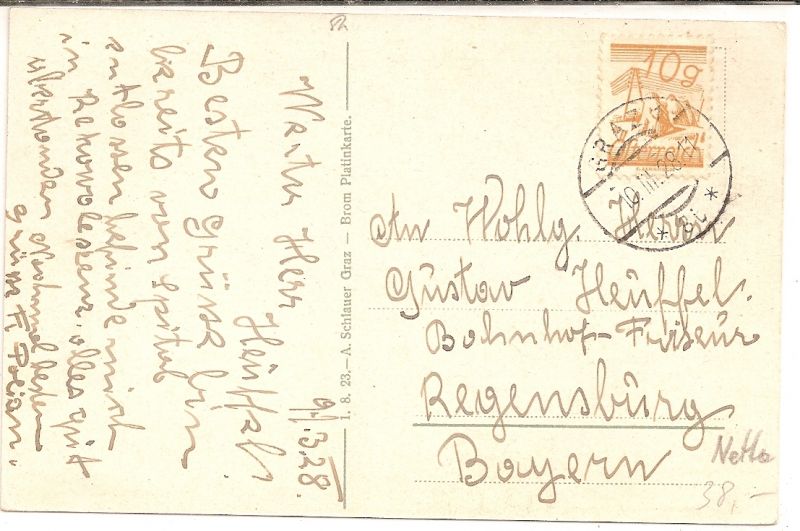 Werter Herr
Heüffel.
9./3.28.
Besten Grüße bin
bereits vom Spital
entlassen befinde mich
in Rekonvoleszenz. alles gut
überstanden
grüßt F.
1. 8. 23.— A. Schlauer Graz — Brom Platinkarte.
10g
GRAZ 1
10.III.28.11
An Wohlg. Herrn
Güstav Heüffel.
Bahnhof-Friseür
Regensbürg
Bayern
Netto
38,-